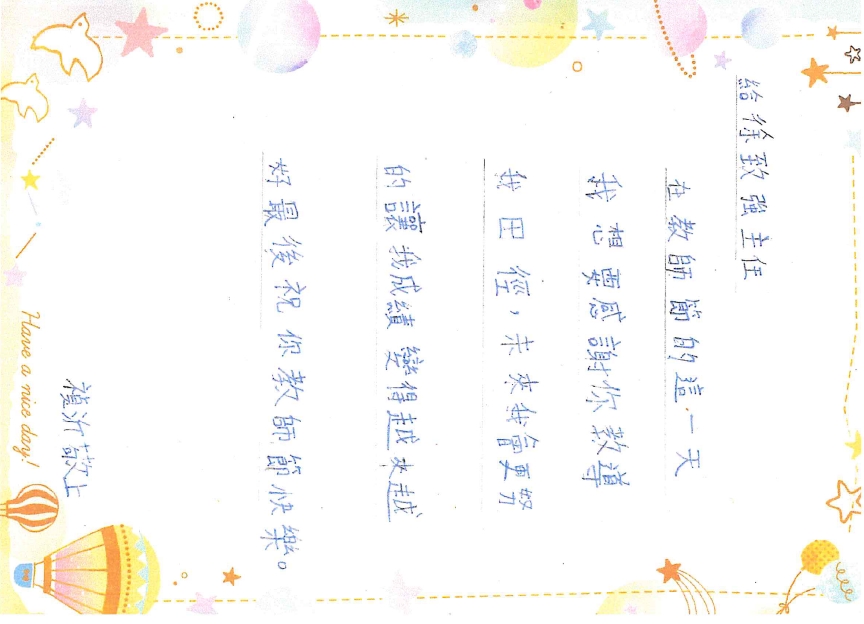 給徐致強主任
在教師節的這一天
我想要感謝你教導
我田徑，未來我會更努力
的讓我成績變得越來越
好最後祝你教師節快樂。
禎沂敬上
Have a nice day!